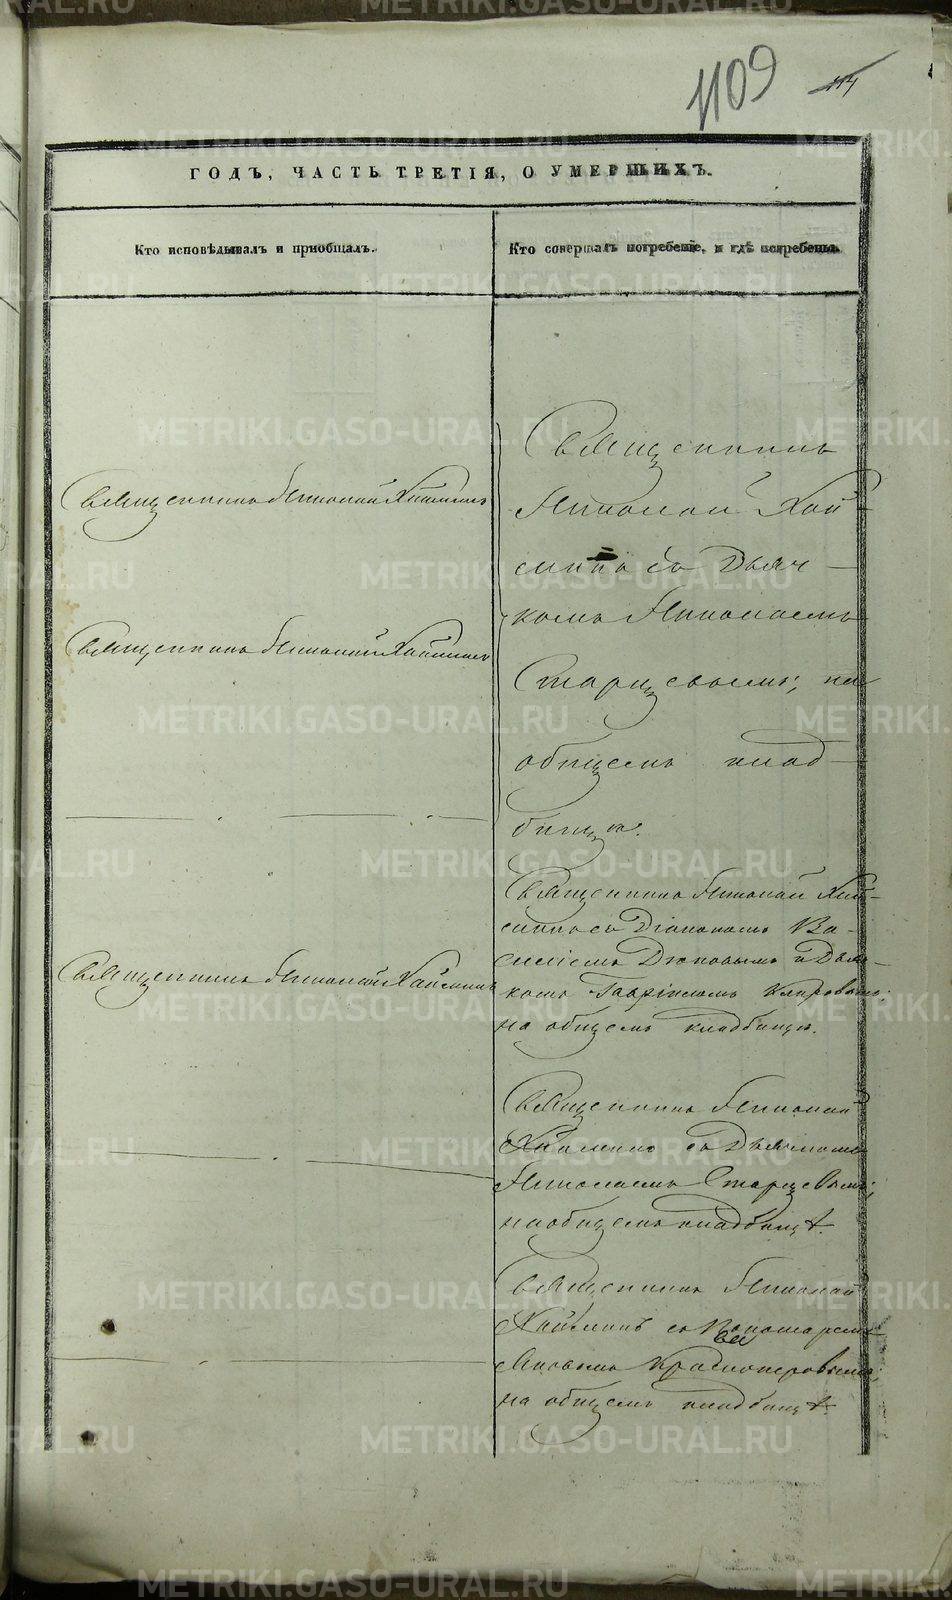 1109
114
ГОДЪ, ЧАСТЬ ТРЕТІЯ, О УМЕРШИХЪ.
Кто исповѣдывалъ и пріобщалъ.
Кто совершалъ погребеніе, и гдѣ погребены.
Священникъ Николай Хайминъ
Священникъ Николай Хайминъ
Священникъ Николай Хайминъ
Священникъ
Николай Хай-
минъ съ Дьяч-
комъ Николаемъ
Старцевымъ; на
общемъ клад-
бищѣ.
Священникъ Николай Хай-
минъ съ Діакономъ Ва-
силіемъ и Дьяч-
комъ Гавріиломъ
на общемъ кладбищѣ.
Священникъ Николай
Хайминъ съ Дьячкомъ
Николаемъ Старцевымъ;
на общемъ кладбищѣ.
Священникъ Николай
Хайминъ съ Пономаремъ
Красноперовымъ;
на общемъ кладбищѣ.
METRIKI.GASO-URAL.RU